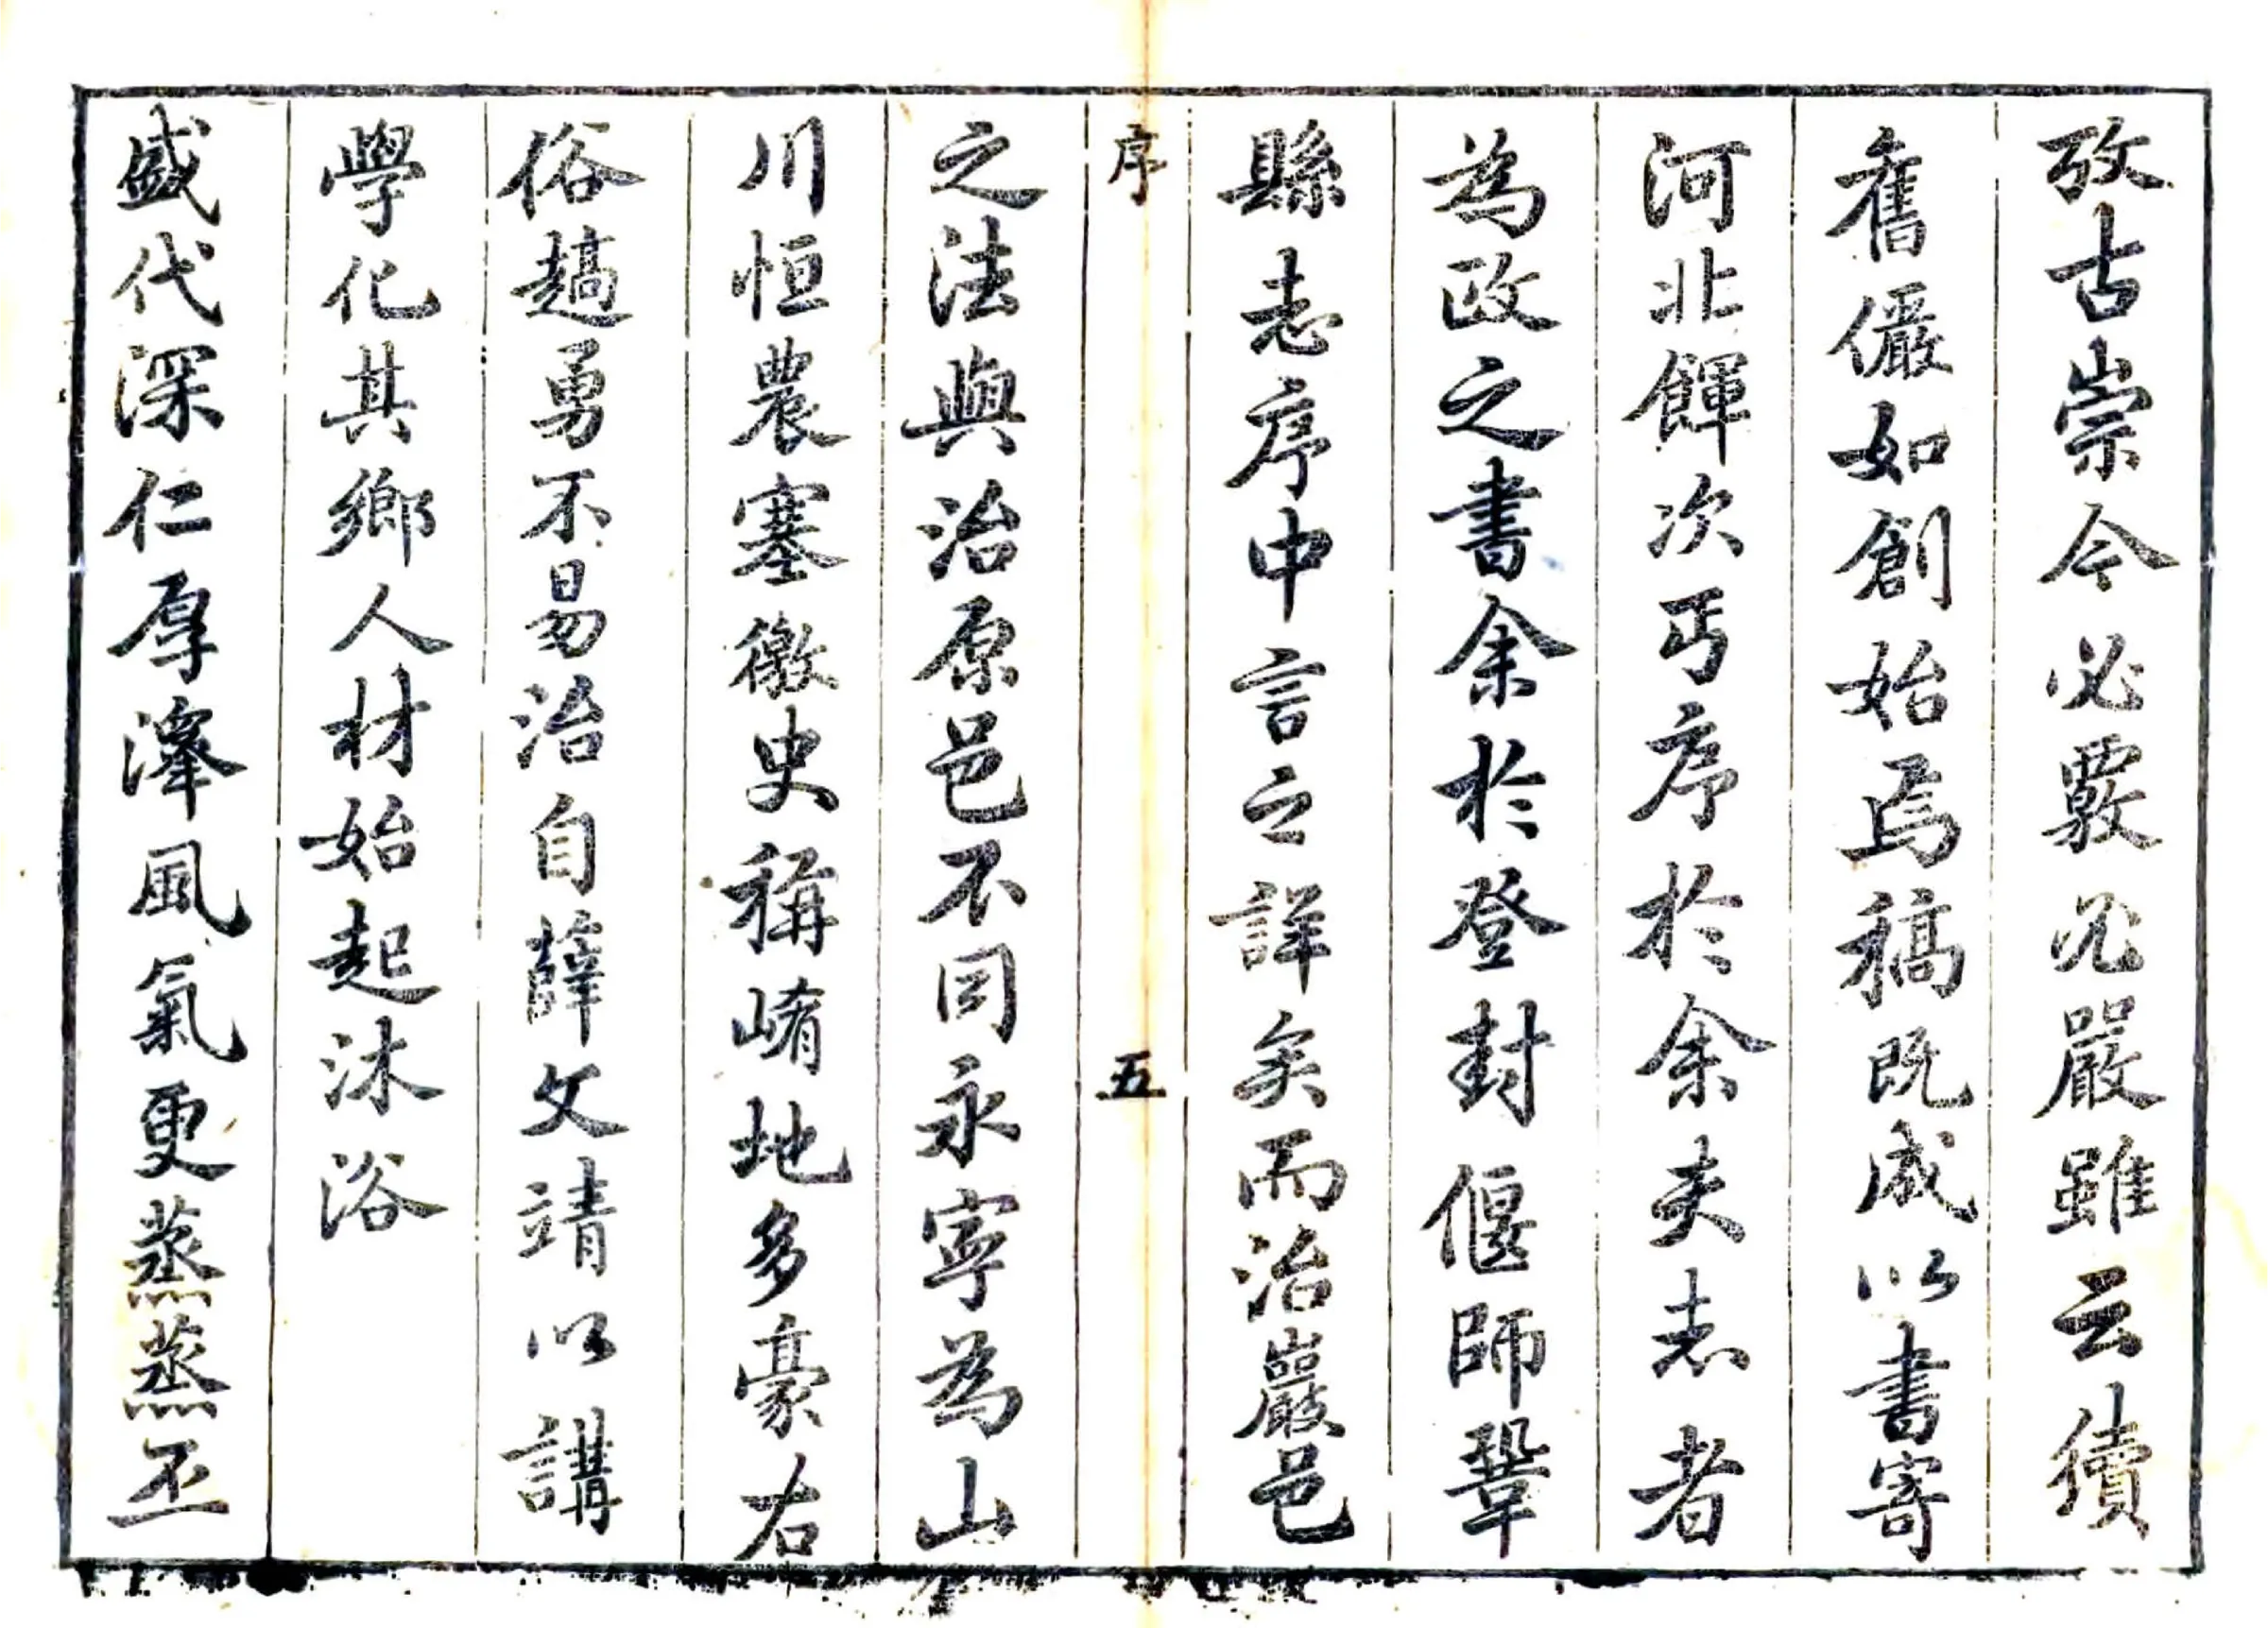 攷古崇今必覈必嚴雖云續
舊儼如創始焉稿既成以書寄
河北餫次丐序於余夫志者
為政之書余於登封偃師鞏
縣志序中言之詳矣而治巖邑
序 五
之法與治原邑不同永寧為山
川恒農塞徼史稱崤地多豪右
俗趫勇不易治自薛文靖以講
學化其鄉人材始起沐浴
盛代深仁厚澤風氣更蒸蒸丕